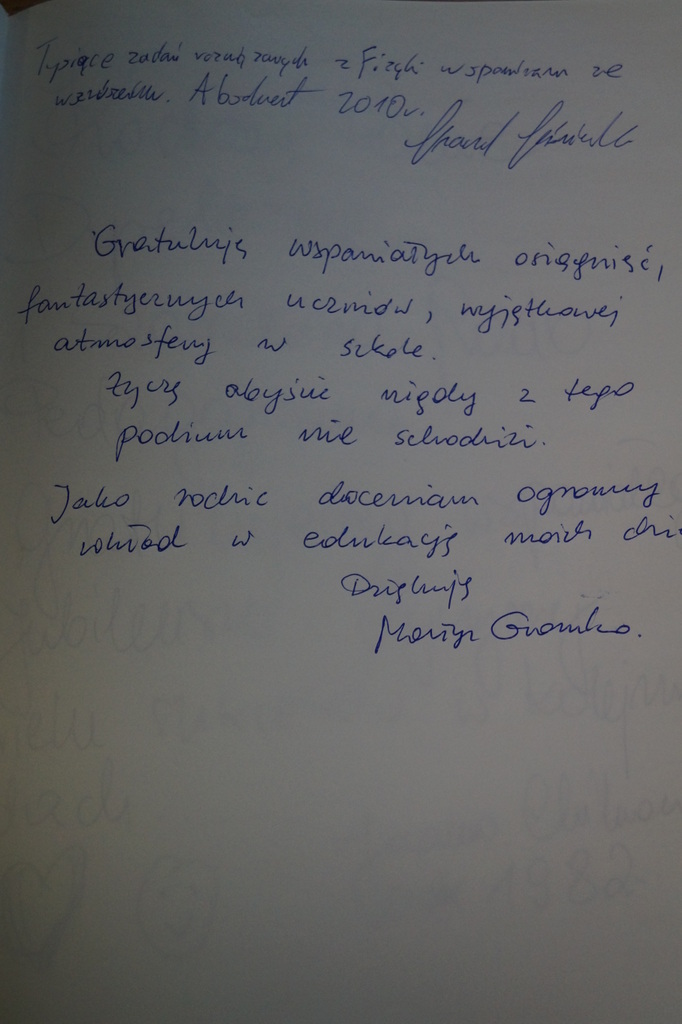 Tysiące zadań rozwiązanych z Fizyki wspominam ze
wzruszeniem. Absolwent 2010r.
Gratuluję wspaniałych osiągnięć,
fantastycznych uczniów, wyjątkowej
atmosfery w szkole.
Życzę abyście nigdy z tego
podium nie schodzili.
Jako rodzic doceniam ogromny
wkład w edukację moich dzi
Dziękuję
1982